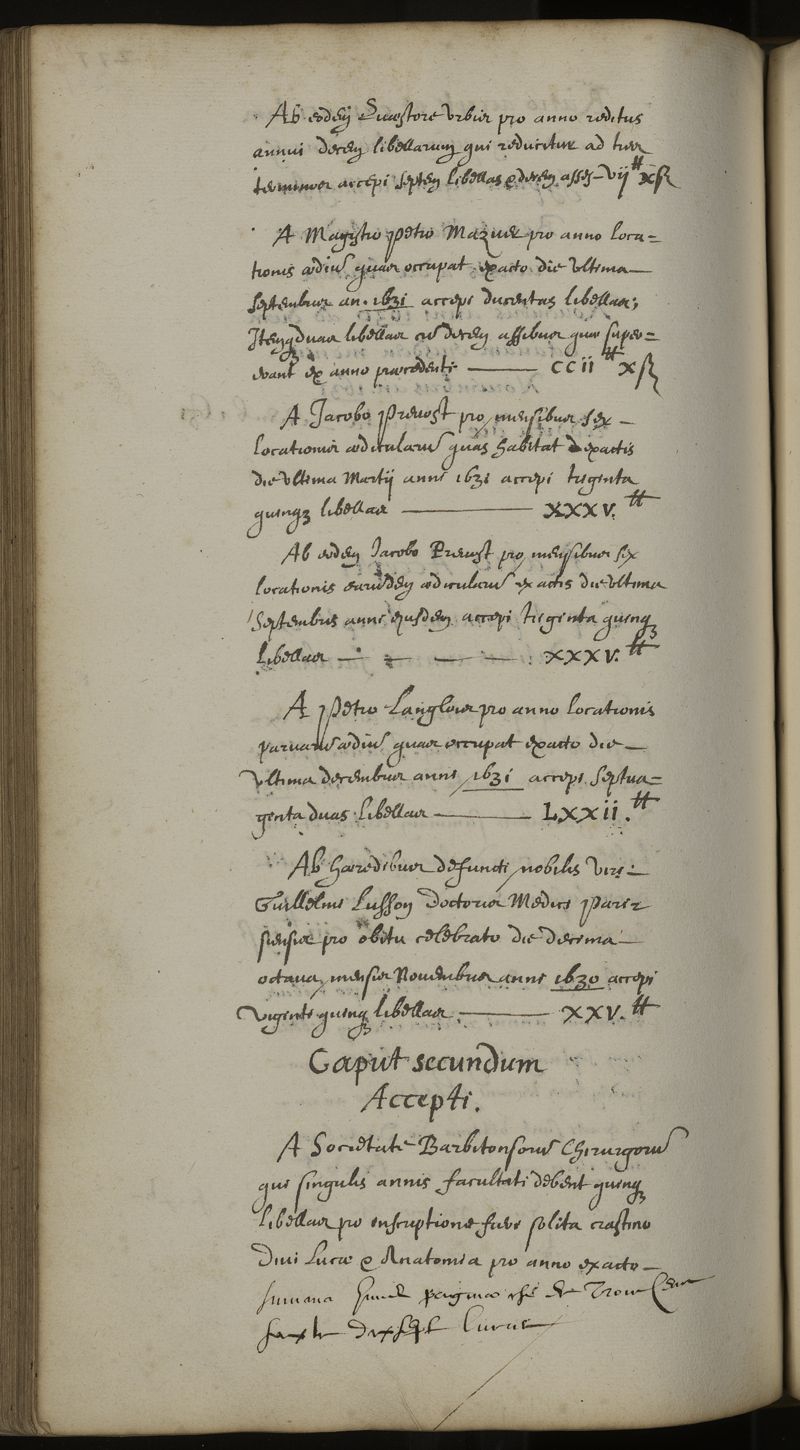 Ab eodem Quæstore Urbis pro anno reditus
annui decem libellarum qui reducitur ad tres
terminos accepi septem libellas & decem asses – Vij ₶ x ß
A Magistro Petro Mazure pro anno loca=
tionis ædiū quas occupat exacto die Ultima —
Septembris an. 1631 accepi ducentas libellas;
Itemq duas libellas cū decem assibus quæ super=
erant ex anno præcedenti — CCii ₶ x ß
A Jacobo Prevost pro mensibus sex —
locationis ædicularū quas habitat exactis
die ultima Martij anni 1631 accepi trigenta
quinq libellas — XXXV. ₶
Ab eodem Jacobo Prevost pro mensibus sex
locationis earūdem ædicularū exactis die ultima
Septembris anni ejusdem accepi trigenta quinq
libellas — XXXV. ₶
A Petro Langlois pro anno locationis
parvarū ædiū quas occupat exacto die —
Vltima decembris anni 1631 accepi Septua=
genta duas libellas — LXXii. ₶
Ab hæredibus defuncti nobilis Viri —
Guillelmi Lusson doctoris Medici Pari=
siensis pro obitu celebrato die decima —
octava mensis Novembris anni 1630 accepi
Vigenti quinq libellas — XXV. ₶
Caput secundum
Accepti.
A Societate Barbitonsorū Chirurgorū
qui singulis annis facultati debent quinq
libellas pro inscriptione fieri solita crastino
Divi Lucæ & Anatomia pro anno exacto —
summa paginæ Trois Cens
dixsept livres